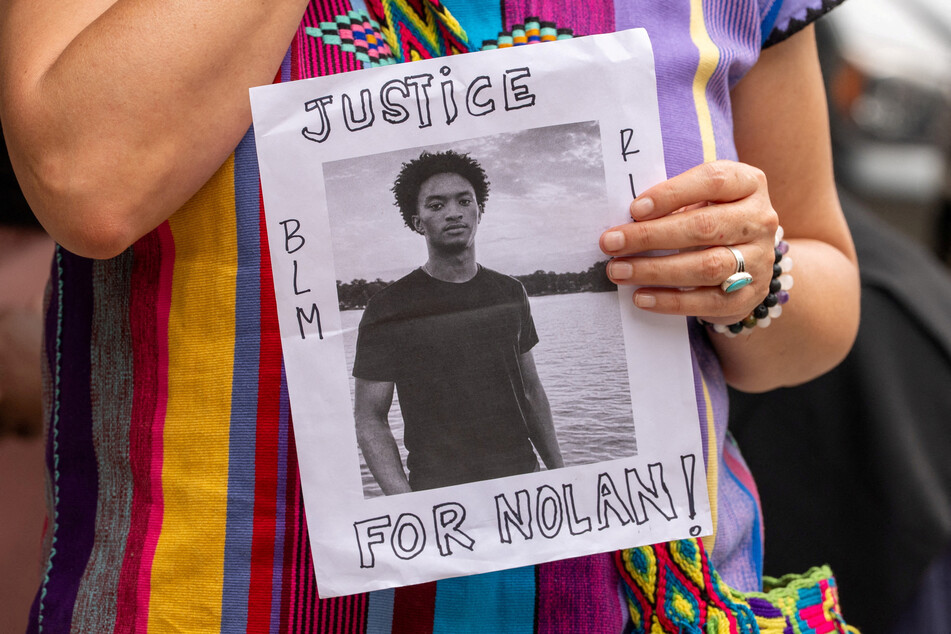 JUSTiCE
BLM
FOR NOLAN!